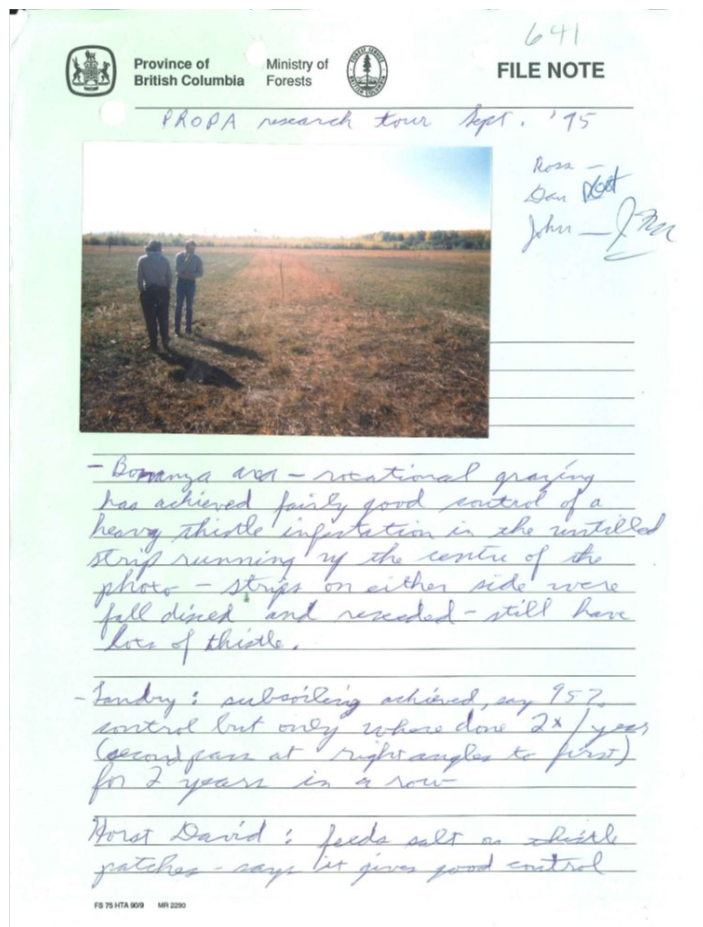 641
Province of
British Columbia
Ministry of
Forests
FOREST SERVICE
BRITISH COLUMBIA
FILE NOTE
PROPA research tour Sept. '95
Ross –
Dan
John —
- Bonanza area - rotational grazing
has achieved fairly good control of a
heavy thistle infestation in the untilled
strip running up the centre of the
photo - strips on either side were
fall disced and reseeded - still have
lots of thistle.
- Landry: subsoiling achieved, say 95%
control but only where done 2x/year
(second pass at right angles to first)
for 2 years in a row
Horst David: feeds salt on thistle
patches - says it gives good control
FS 75 HTA 90/9 MR 2290